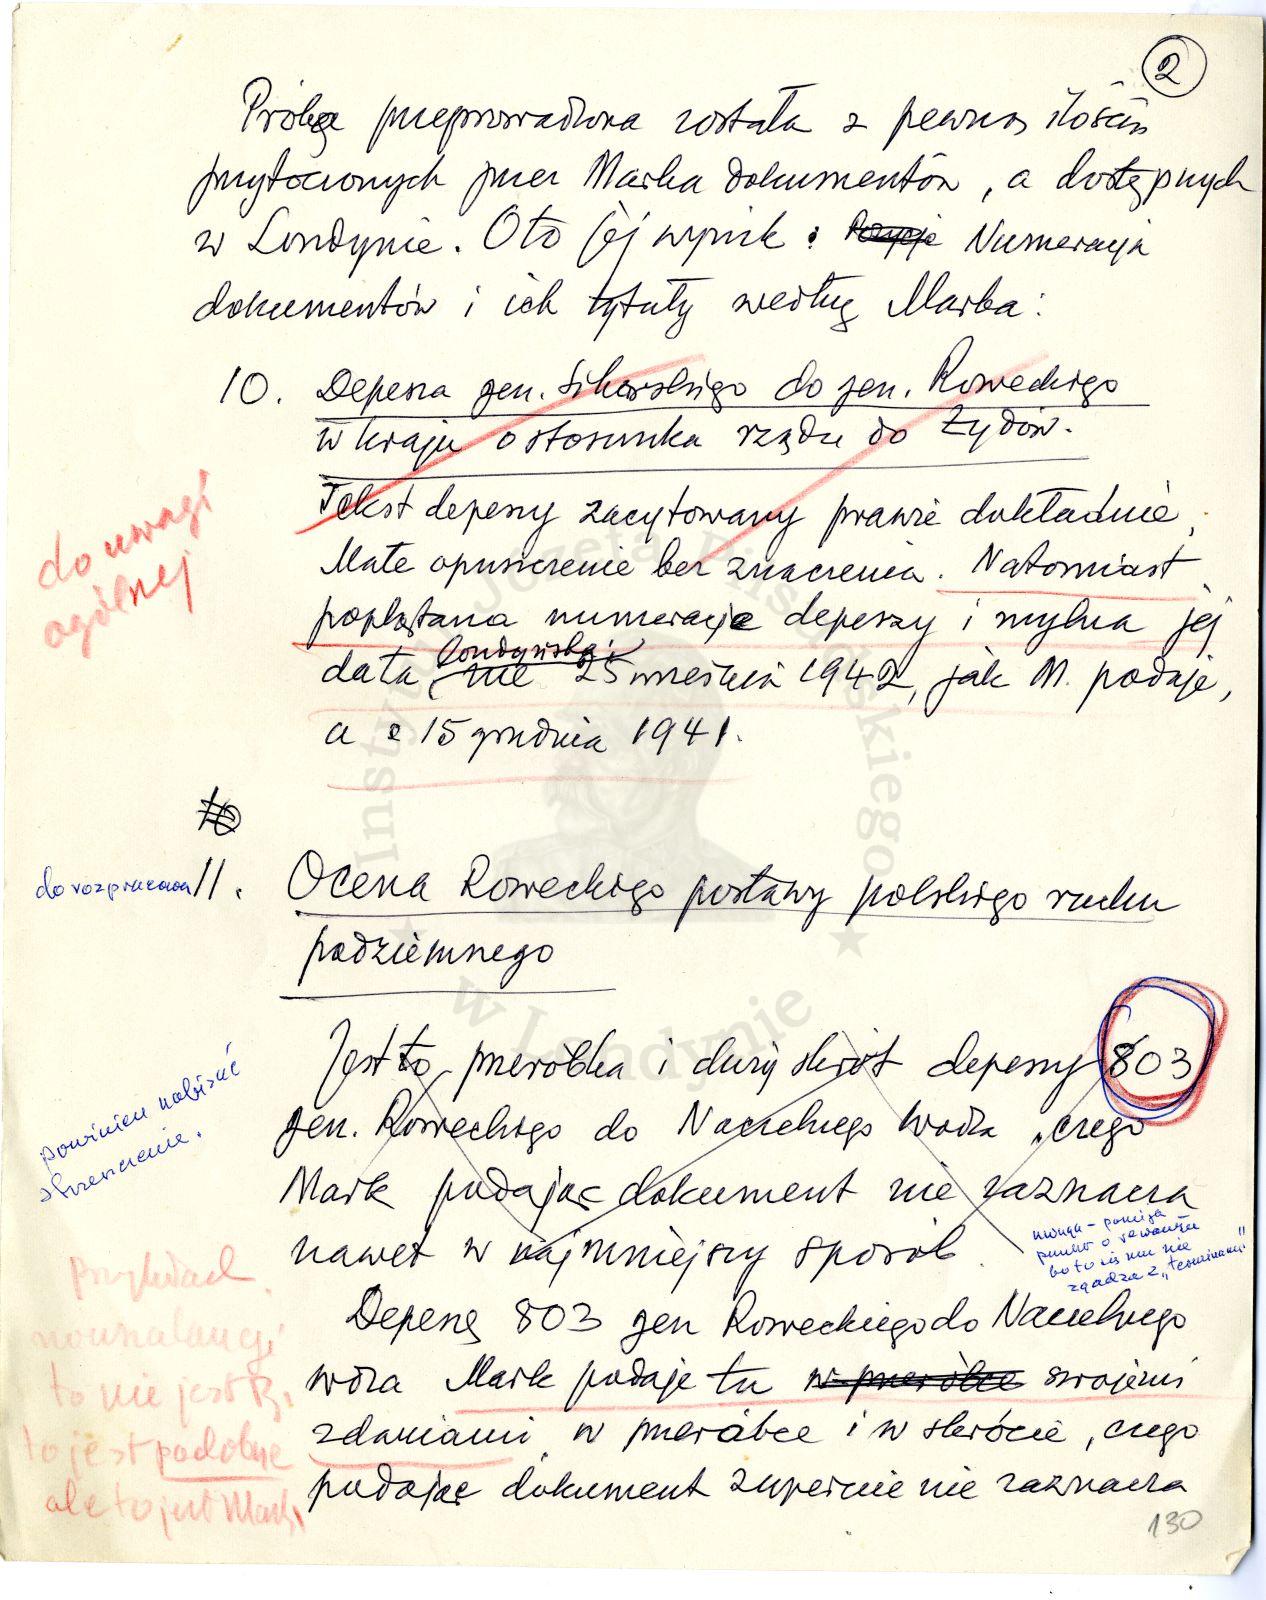 2
Próba przeprowadzona została z pewną ilością
przytoczonych przez Marka dokumentów, a dostępnych
w Londynie. Oto jej wynik: Numeracja
dokumentów i ich tytuły według Marka:
10. Depesza gen. Sikorskiego do gen. Roweckiego
w kraju o stosunku rządu do Żydów.
Tekst depeszy zacytowany prawie dokładnie,
Małe opuszczenie bez znaczenia. Natomiast
do uwagi
ogólnej
poplątana numeracja depeszy i mylna jej
londyńska:
data nie 25 września 1942, jak M. podaje,
a z 15 grudnia 1941.
10
do rozpracowa
11. Ocena Roweckiego postawy polskiego ruchu
podziemnego
Jest to przeróbka i duży skrót depeszy 803
gen. Roweckiego do Naczelnego Wodza, czego
powinien nabisać
streszczenie.
Mark podając dokument nie zaznacza
nawet w najmniejszy sposób
uwaga - pomija
punkt o
bo to się mu nie
zgadza z "terminami"
Przykład
nonszalancji
to nie jest R.
to jest podobne
ale to jest Mark,
Depeszę 803 gen Roweckiego do Naczelnego
wodza Mark podaje tu w przeróbce swojemi
zdaniami, w przeróbce i w skrócie, czego
podając dokument zupełnie nie zaznacza
130
Instytut Józefa Piłsudskiego
w Londynie